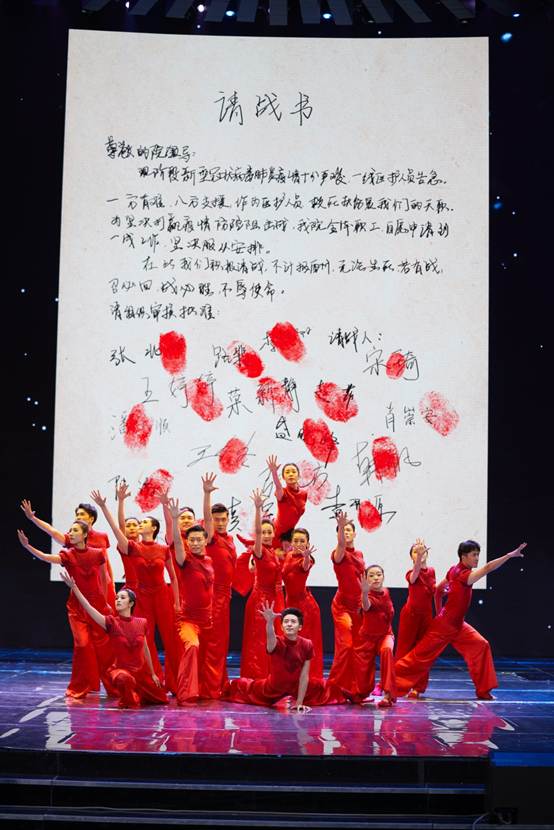 请战书
尊敬的院领导：
现阶段新型冠状病毒肺炎疫情十分严峻，一线医护人员告急。
一方有难，八方支援，作为医护人员 救死扶伤是我们的天职。
为坚决打赢疫情防控阻击战，我院全体职工，自愿申请到
一线工作，坚决服从安排。
在此我们积极请战，不计报酬，无论生死，若有战，
召必回，战必胜，不辱使命。
请组织审核批准：
请战人：
张
宋琦
王婷婷 荣新静
潘 顺
肖崇安